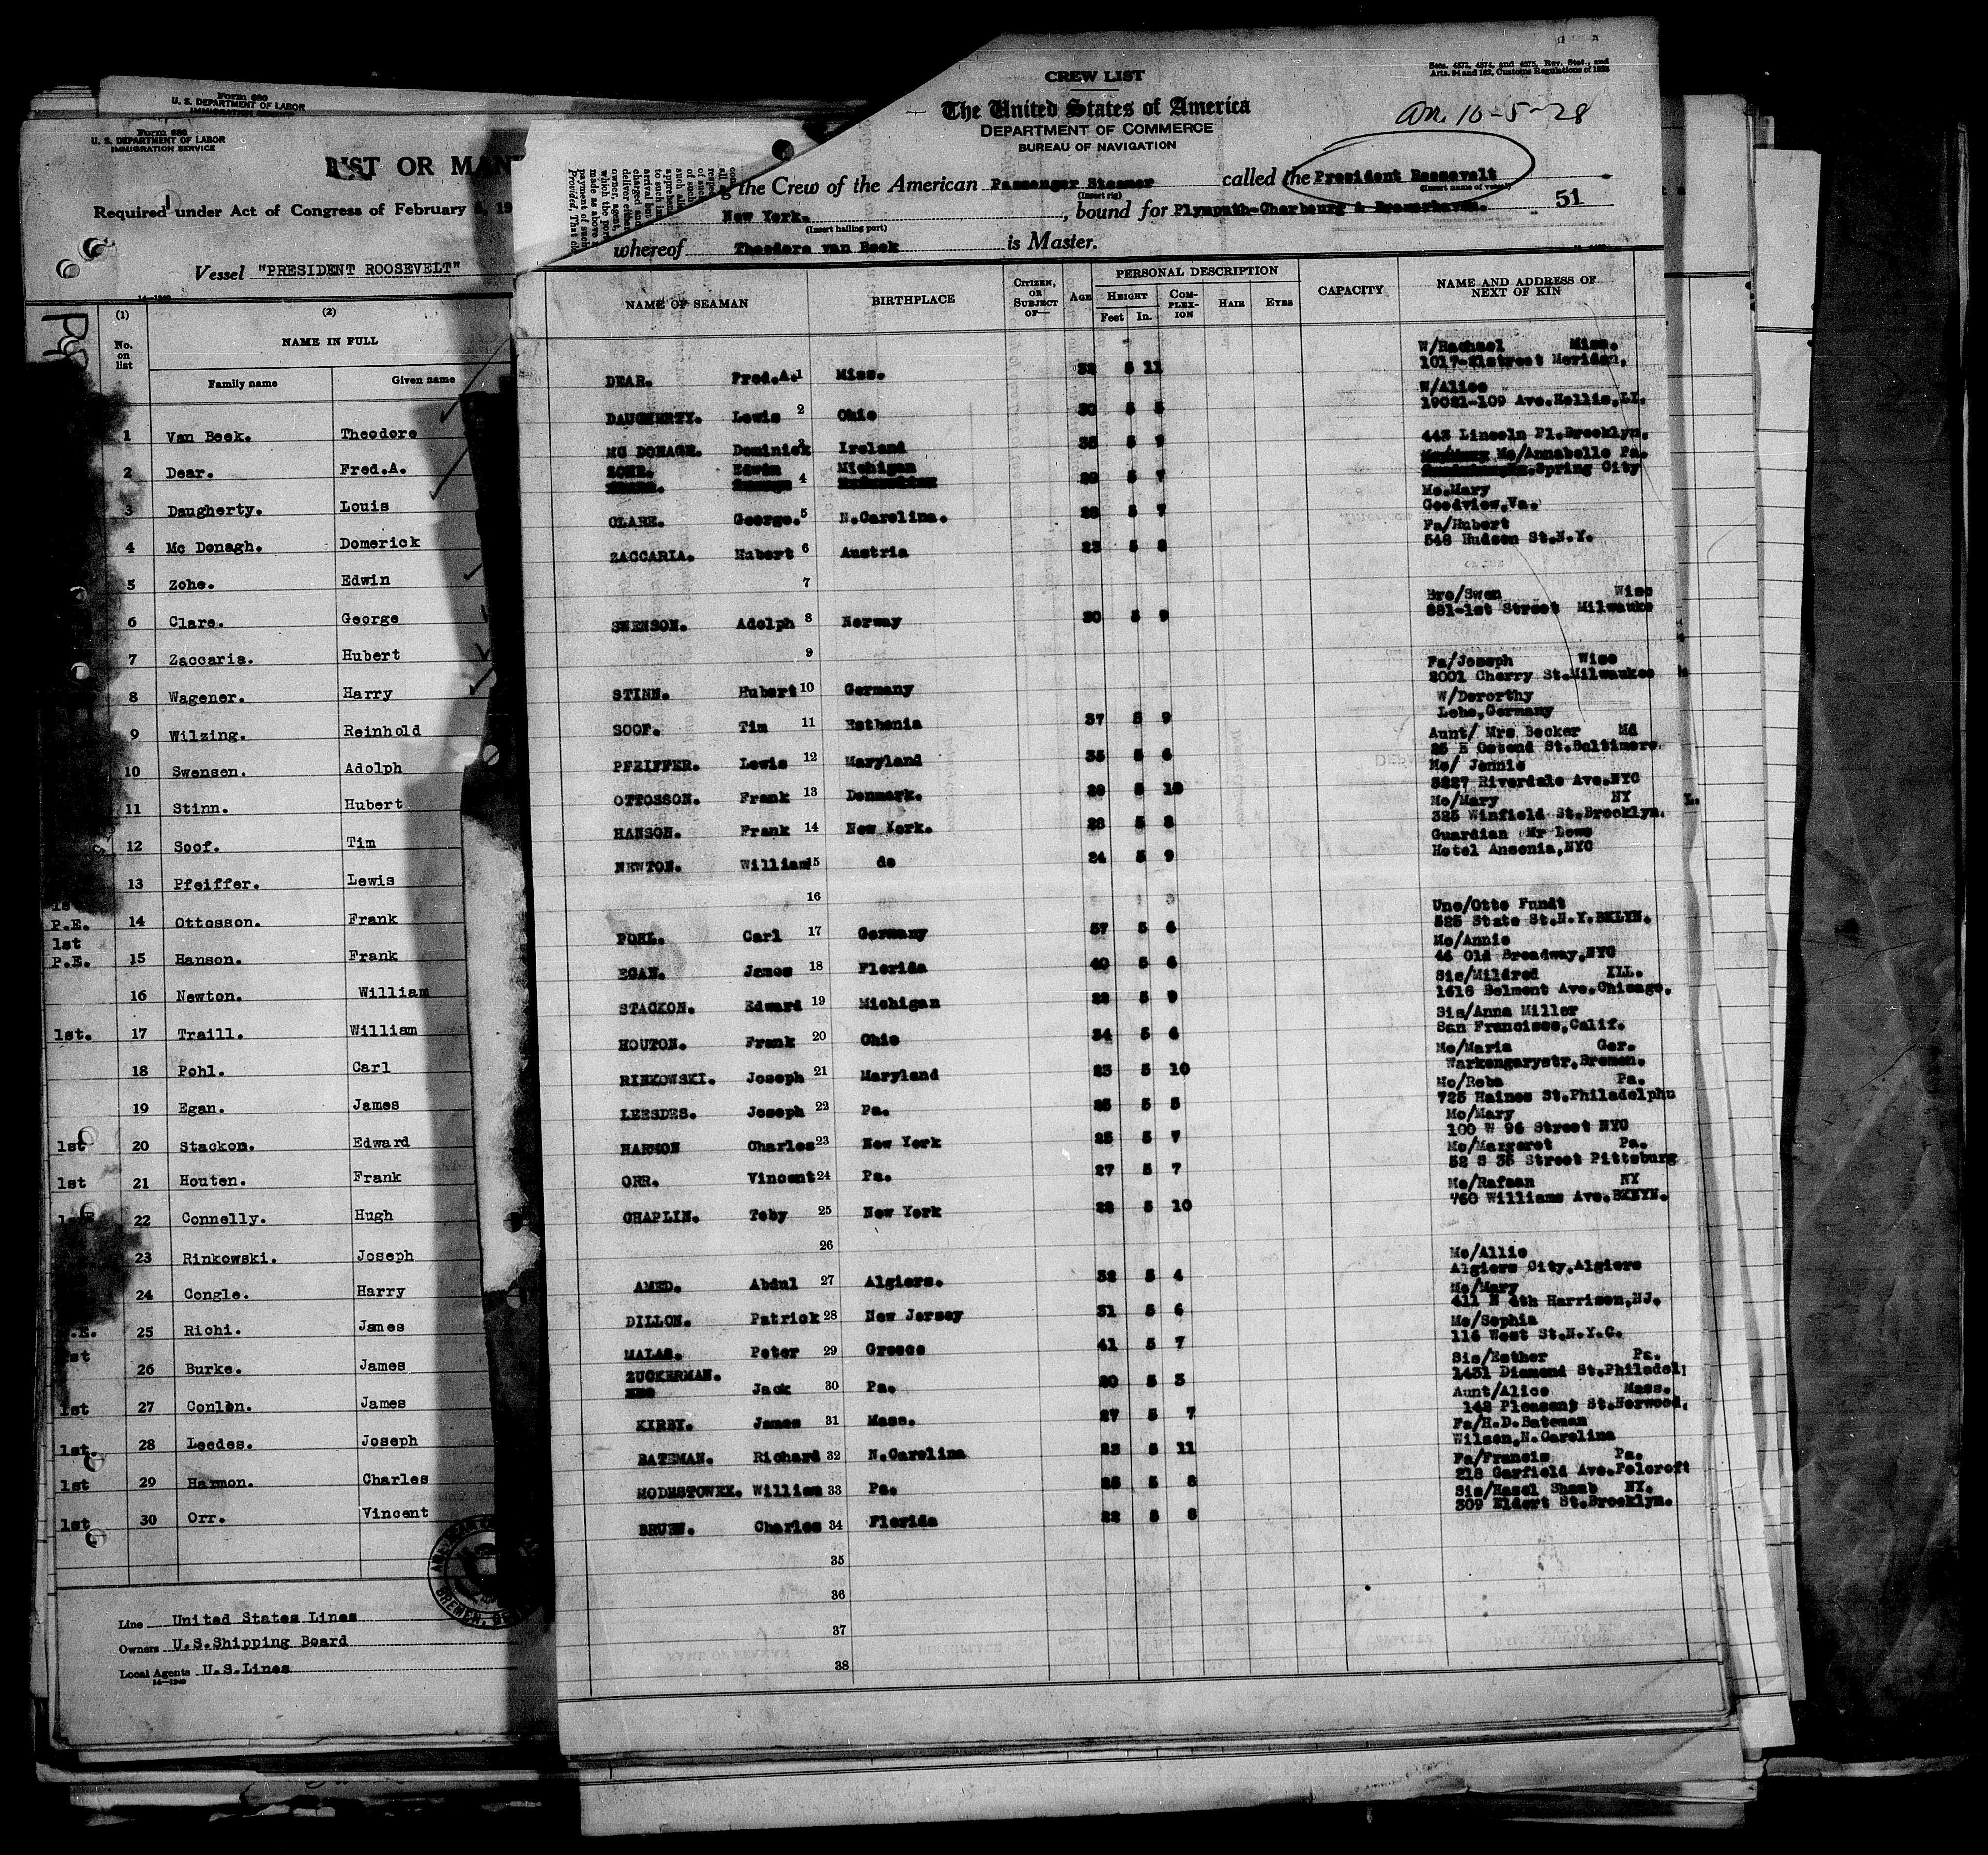 Form 680
U. S. DEPARTMENT OF LABOR
IMMIGRATION SERVICE
Form 680
U. S. DEPARTMENT OF LABOR
IMMIGRATION SERVICE
LIST OR MAN
Required under Act of Congress of February 5, 19
Vessel "PRESIDENT ROOSEVELT"
(1) (2)
No. on list NAME IN FULL
Family name Given name
1 Van Beek. Theodore
2 Dear. Fred.A.
3 Daugherty. Louis
4 Mc Donagh. Domerick
5 Zohe. Edwin
6 Clare. George
7 Zaccaria. Hubert
8 Wagener. Harry
9 Wilzing. Reinhold
10 Swensen. Adolph
11 Stinn. Hubert
12 Soof. Tim
13 Pfeiffer. Lewis
P.E. 14 Ottosson. Frank
1st
P.E. 15 Hanson. Frank
16 Newton. William
1st. 17 Traill. William
18 Pohl. Carl
19 Egan. James
1st 20 Stackon. Edward
1st 21 Houten. Frank
22 Connelly. Hugh
23 Rinkowski. Joseph
24 Congle. Harry
25 Richi. James
26 Burke. James
1st 27 Conlon. James
1st. 28 Leedes. Joseph
1st 29 Harmon. Charles
1st 30 Orr. Vincent
Line United States Lines
Owners U.S.Shipping Board
Local Agents U.S.Lines
14—1240
CREW LIST
The United States of America
DEPARTMENT OF COMMERCE
BUREAU OF NAVIGATION
Secs. 4573, 4574, and 4575, Rev. Stat., and
Arts. 94 and 162, Customs Regulations of 1923
10-5-28
g the Crew of the American Passenger Steamer called the President Roosevelt
(Insert rig) (Insert name of vessel)
New York. , bound for Plymouth-Cherbourg & Bremerhaven. 51
(Insert hailing port)
whereof Theodore van Beek is Master.
NAME OF SEAMAN BIRTHPLACE CITIZEN, OR SUBJECT OF— AGE PERSONAL DESCRIPTION CAPACITY NAME AND ADDRESS OF NEXT OF KIN
HEIGHT COM-PLEX-ION HAIR EYES
Feet In.
W/Rachael Miss.
DEAR. Fred.A. 1 Miss. 32 5 11 1017-21street Meridan.
W/Alice
DAUGHERTY. Lewis 2 Ohio 30 5 19021-109 Ave.Hollis,LI.
MC DONAGH. Dominick Ireland 35 5 443 Lincoln Pl.Brooklyn.
ZOHE. Edwin Michigan Mo/Annabelle Pa.
4 5 7 Spring City
Mo.Mary
CLARE. George. 5 N.Carolina. 5 7 Goodview,Va.
Fa/Hubert
ZACCARIA. Hubert 6 Austria 23 5 8 548 Hudson St.N.Y.
7
Bro/Swen Wisc
SWENSON. Adolph 8 Norway 30 5 9 881-1st Street Milwauke
9
Fa/Joseph Wisc
STINN. Hubert 10 Germany 2001 Cherry St.Milwaukee
W/Dororthy
SOOF. Tim 11 Esthonia 37 5 9 Lehe,Germany
Aunt/ Mrs Becker Md
PFEIFFER. Lewis 12 Maryland 35 5 6 25 E Ostend St.Baltimore.
Mo/ Jennie
OTTOSSON. Frank 13 Denmark. 29 5 10 Riverdale Ave.NYC
Mo/Mary NY
HANSON. Frank 14 New York. 28 5 8 325 Winfield St.Brooklyn.
Guardian Mr Lowe
NEWTON. William 15 do 24 5 9 Hotel Ansonia,NYC
16
Unc/Otto Fundt
POHL. Carl 17 Germany 57 5 6 525 State St.N.Y.BKLYN.
Mo/Annie
EGAN. James 18 Florida 40 5 6 46 Old Broadway,NYC
Sis/Mildred ILL.
STACKON. Edward 19 Michigan 5 9 1618 Belmont Ave.Chicago.
Sis/Anna Miller
HOUTON. Frank 20 Ohio 34 5 6 San Francisco,Calif.
Mo/Maria Ger.
RINKOWSKI. Joseph 21 Maryland 23 5 10 Warkengarystr,Bremen.
Mo/Reba Pa.
LEESDES. Joseph 22 Pa. 5 5 725 Haines St.Philadelphu
Mo/Mary
HARMON Charles 23 New York 25 5 7 100 W 96 Street NYC
Mo/Margaret Pa.
ORR. Vincent 24 Pa. 27 5 7 52 S 35 Street Pittsburg
Mo/Rafean NY
CHAPLIN. Toby 25 New York 22 5 10 760 Williams Ave.BKLYN.
26
Mo/Allie
AMED. Abdul 27 Algiers. 32 5 4 Algiers City,Algiers
Mo/Mary
DILLON. Patrick 28 New Jersey 31 5 6 411 N 4th Harrison,NJ.
Mo/Sophia
MALAS. Peter 29 Greece 41 5 7 116 West St.N.Y.C.
ZUCKERMAN. Sis/Esther Pa.
Jack 30 Pa. 20 5 3 1431 Diamond St.Philadel
Aunt/Alice Mass.
KIRBY. James 31 Mass. 27 5 7 142 Pleasant St.Norwood.
Fa/H.D.Bateman
BATEMAN. Richard 32 N.Carolina 23 5 11 Wilson,N.Carolina
Fa/Francis Pa.
MODESTOWEK. William 33 Pa. 5 8 218 Garfield Ave.Folcroft
Sis/Hazel Shaub NY.
BRUEN. Charles 34 Florida 22 5 8 309 Eldert St.Brooklyn.
35
36
37
38